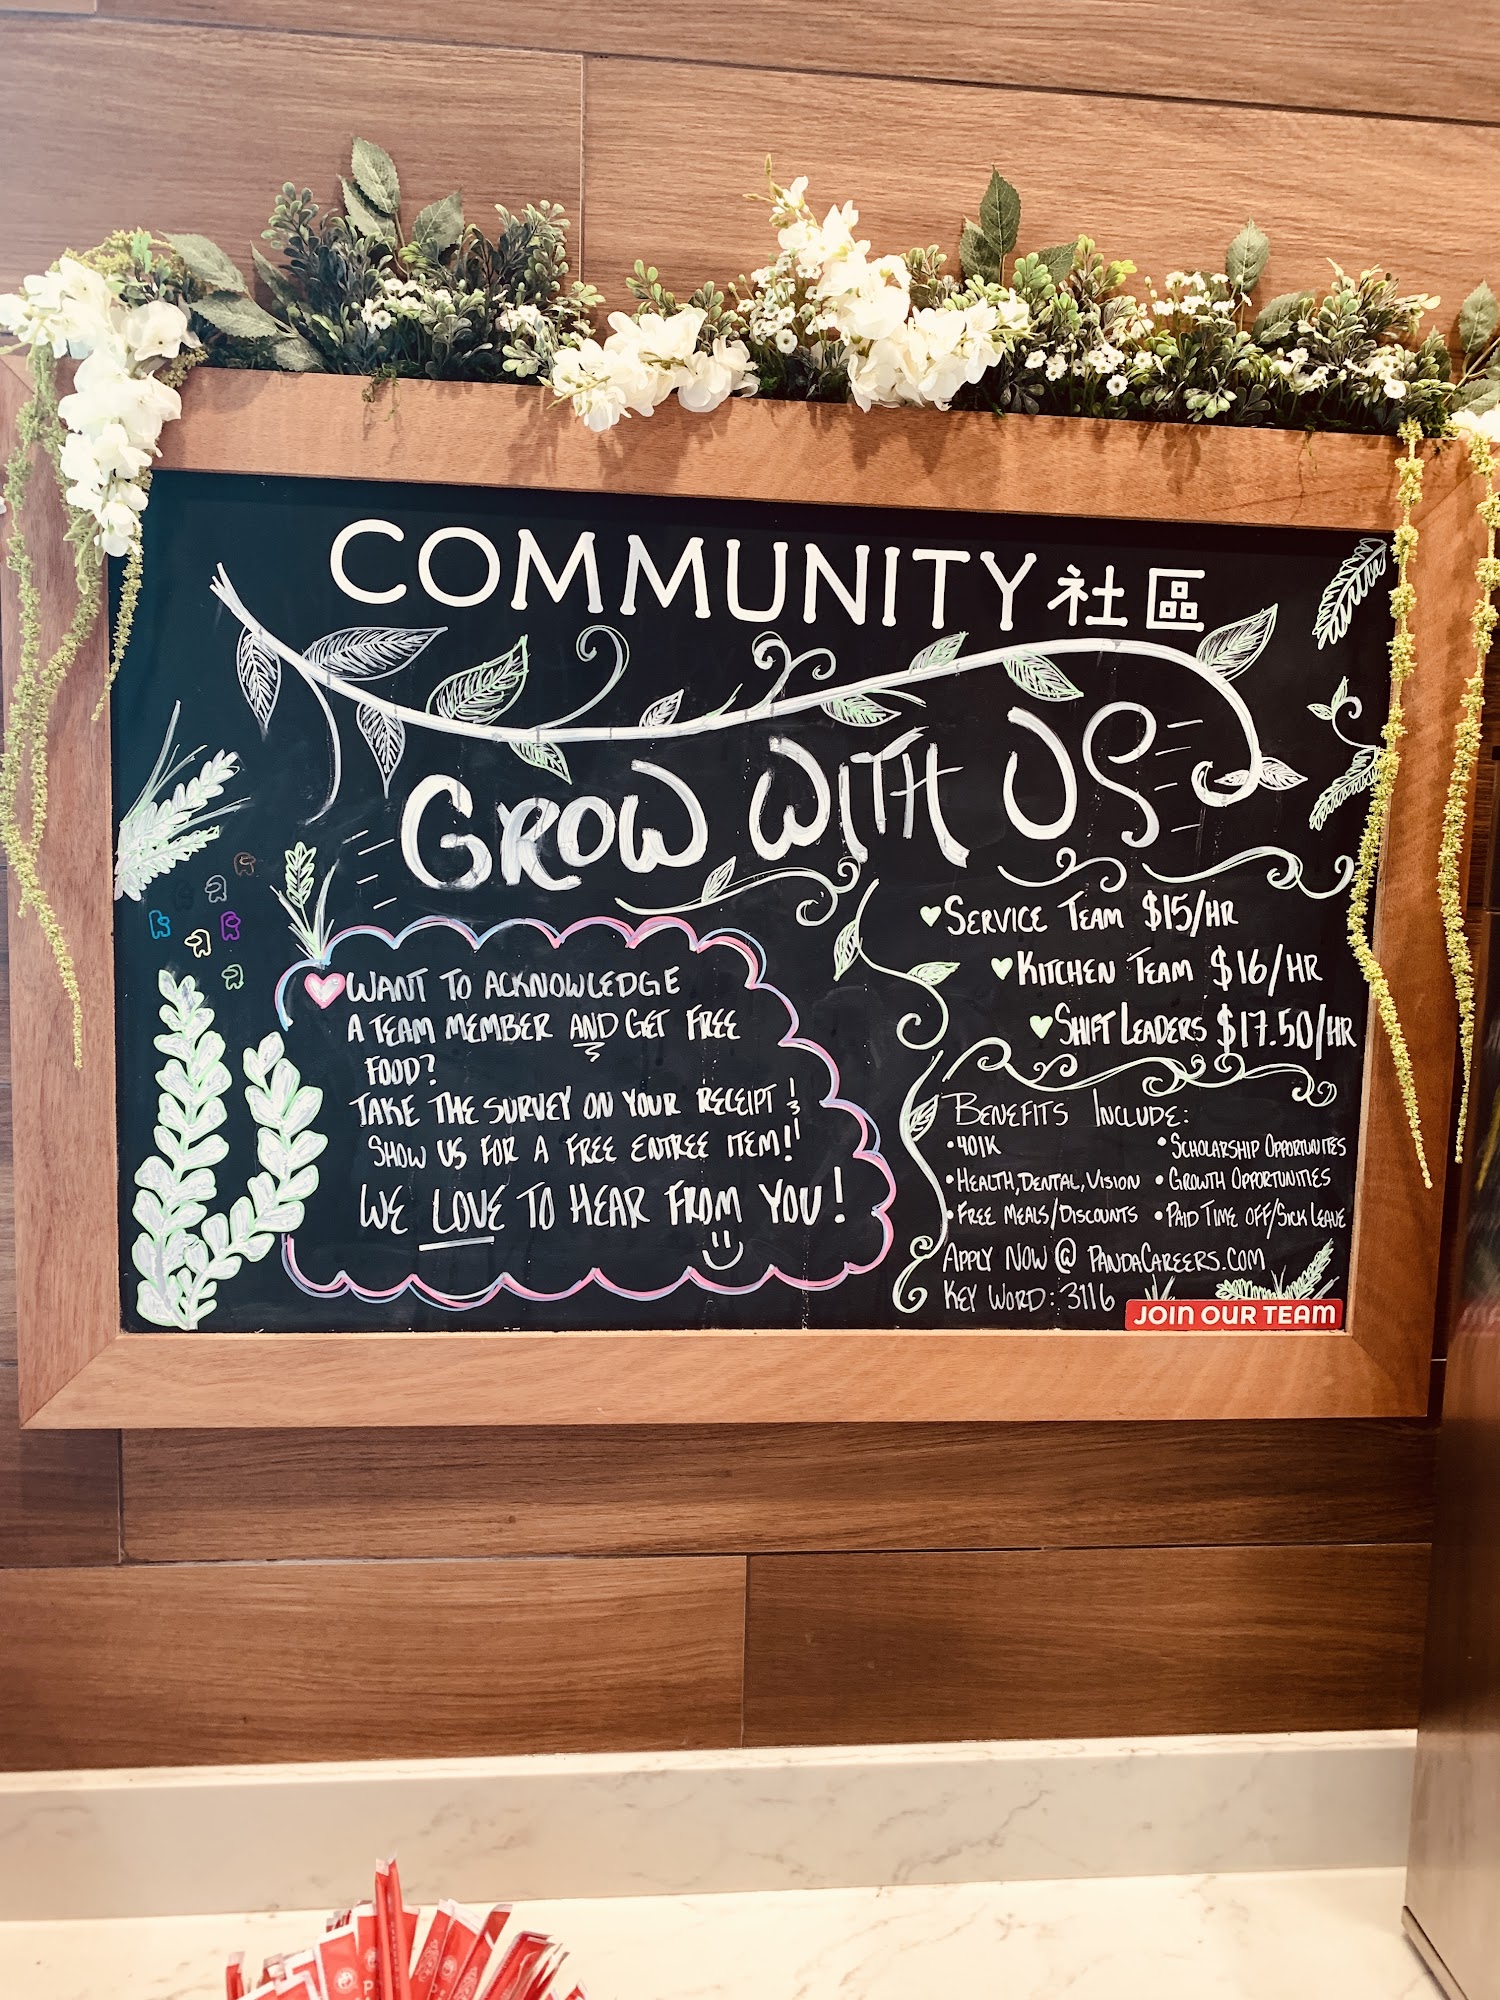 COMMUNITY 社區
GROW WITH US
WANT TO ACKNOWLEDGE
A TEAM MEMBER AND GET FREE
FOOD?
TAKE THE SURVEY ON YOUR RECEIPT &
SHOW US FOR A FREE ENTREE ITEM!!
WE LOVE TO HEAR FROM YOU!
SERVICE TEAM $15/HR
KITCHEN TEAM $16/HR
SHIFT LEADERS $17.50/HR
BENEFITS INCLUDE:
• 401K
• HEALTH, DENTAL, VISION
• FREE MEALS/DISCOUNTS
• SCHOLARSHIP OPPORTUNITES
• GROWTH OPPORTUNITIES
• PAID TIME OFF/SICK LEAVE
APPLY NOW @ PANDACAREERS.COM
KEY WORD: 3116
JOIN OUR TEAM